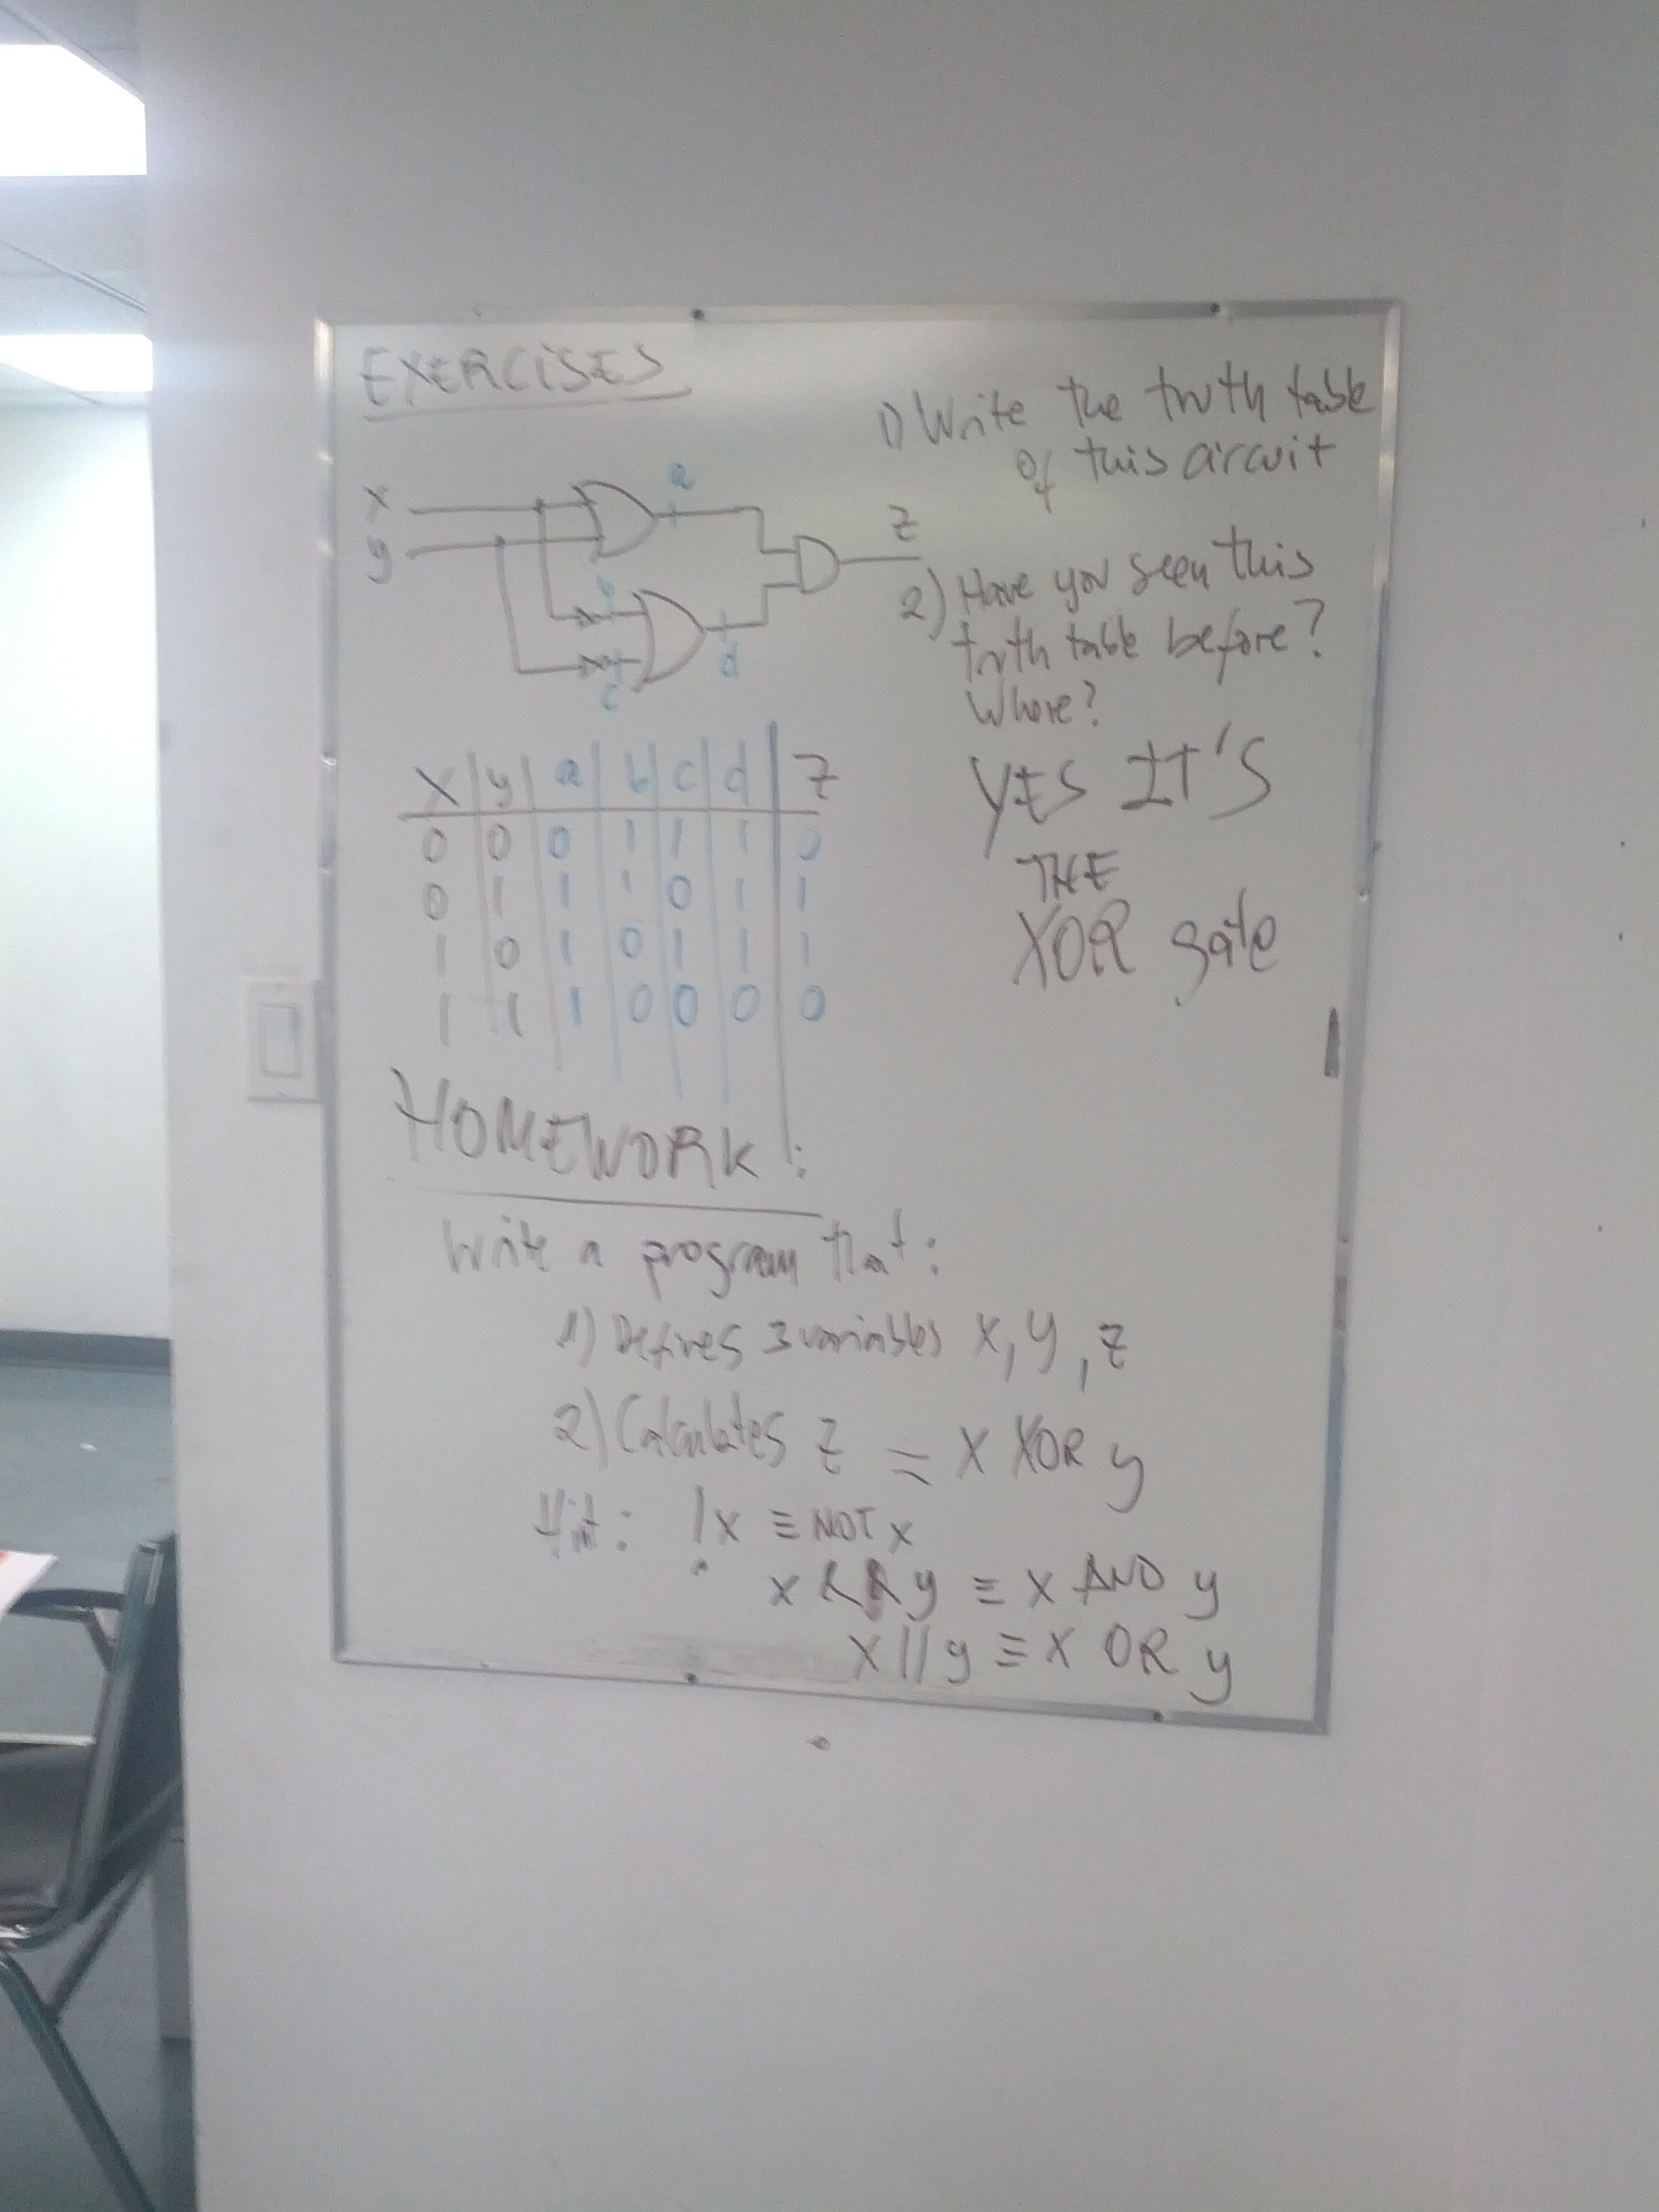 EXERCISES
1) Write the truth table
of this circuit
x
y
a
b
c
d
z
2) Have you seen this
truth table before?
Where?
YES IT'S
THE
XOR gate
x y a b c d z
0 0 0 1 1 1 0
0 1 1 1 0 1 1
1 0 1 0 1 1 1
1 1 1 0 0 0 0
HOMEWORK:
Write a program that:
1) Defines 3 variables x, y, z
2) Calculates z = x XOR y
Hint: !x ≡ NOT x
x && y ≡ x AND y
x || y ≡ x OR y